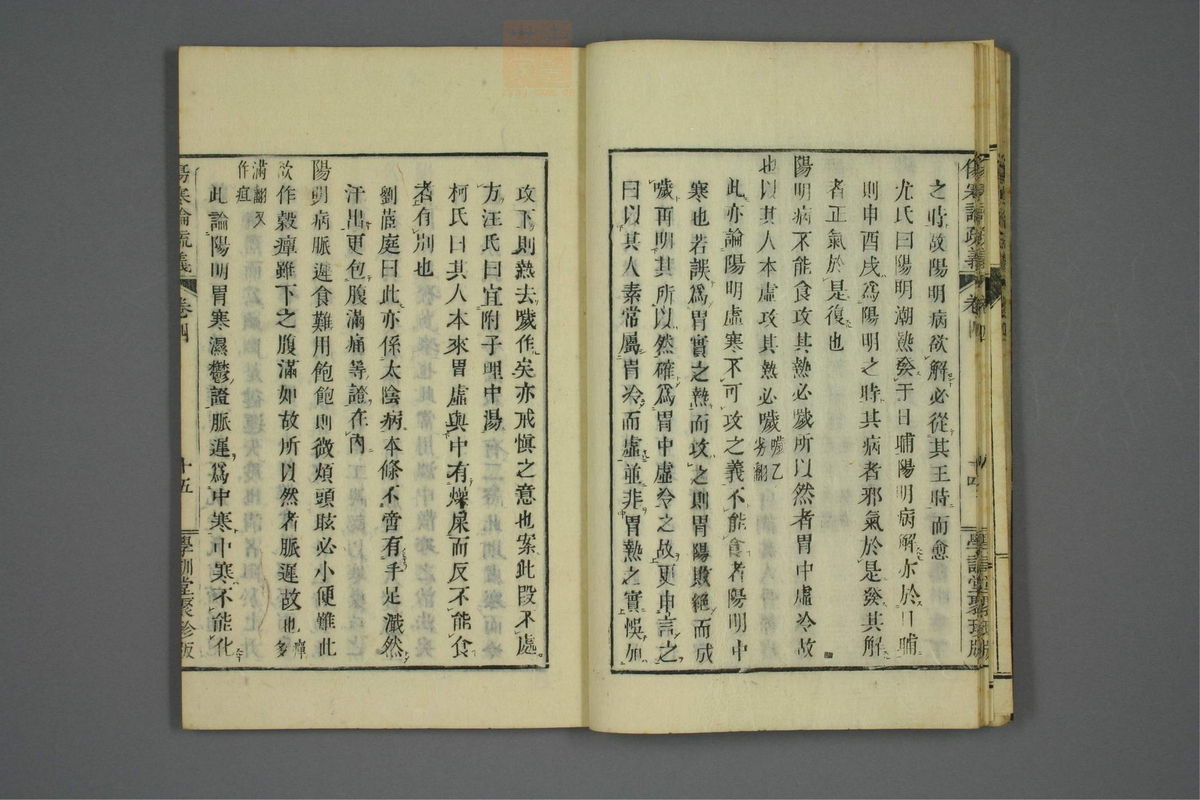 傷寒論疏義 卷四 十四 學訓堂聚珍版
之時故陽明病欲解必從其王時而愈
尤氏曰陽明潮熱發于日晡陽明病解亦於日晡
則申酉戌爲陽明之時其病者邪氣於是發其解
者正氣於是復也
陽明病不能食攻其熱必噦所以然者胃中虛冷故
也以其人本虛攻其熱必噦噦乙劣翻
此亦論陽明虛寒不可攻之義不能食者陽明中
寒也若誤爲胃實之熱而攻之則胃陽敗絕而成
噦再明其所以然確爲胃中虛冷之故更申言之
曰以其人素常屬胃冷而虛並非胃熱之實悞加
攻下則熱去噦作矣亦戒愼之意也案此段不處
方汪氏曰宜附子理中湯
柯氏曰其人本來胃虛與中有燥屎而反不能食
者有別也
劉茝庭曰此亦係太陰病本條不啻有手足濈然
汗出更包腹滿痛等證在內
陽明病脈遲食難用飽飽則微煩頭眩必小便難此
欲作穀癉雖下之腹滿如故所以然者脈遲故也癉多
滿翻又作疸
此論陽明胃寒濕鬱證脈遲爲中寒中寒不能化
傷寒論疏義 卷四 十五 學訓堂聚珍版